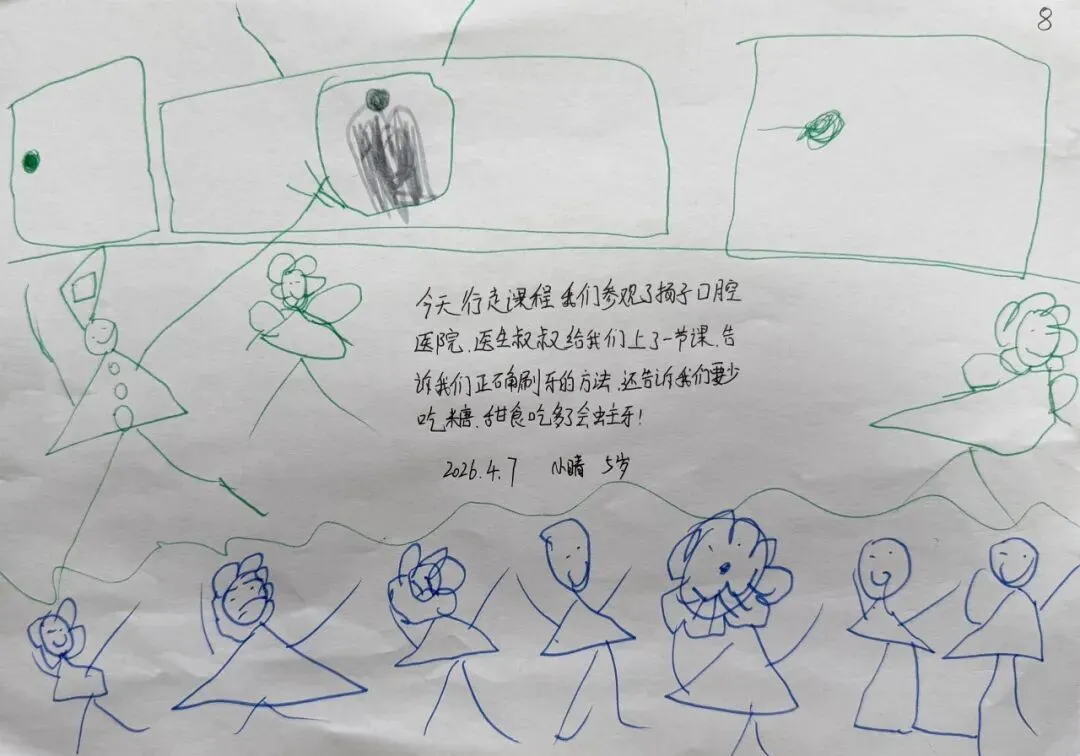 8
今天行走课程我们参观了扬子口腔
医院.医生叔叔给我们上了一节课.告
诉我们正确刷牙的方法.还告诉我们要少
吃糖.甜食吃多了会蛀牙!
2026.4.7 小晴 5岁